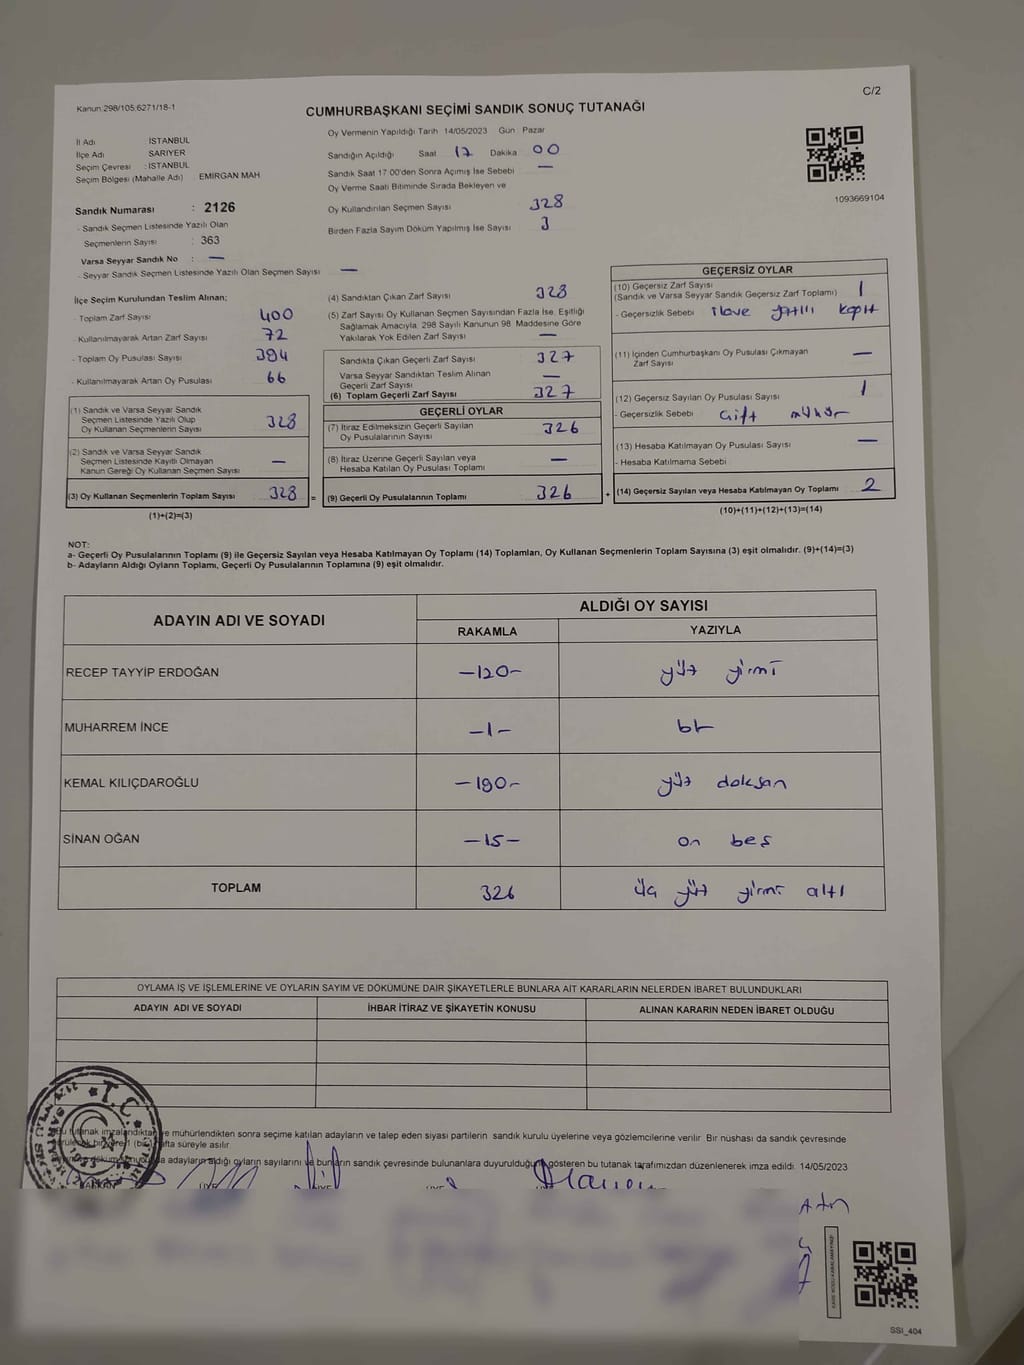 Kanun:298/105.6271/18-1
C/2
CUMHURBAŞKANI SEÇİMİ SANDIK SONUÇ TUTANAĞI
İl Adı İSTANBUL
İlçe Adı SARIYER
Seçim Çevresi : İSTANBUL
Seçim Bölgesi (Mahalle Adı) EMİRGAN MAH
Sandık Numarası : 2126
- Sandık Seçmen Listesinde Yazılı Olan
Seçmenlerin Sayısı : 363
Varsa Seyyar Sandık No : —
- Seyyar Sandık Seçmen Listesinde Yazılı Olan Seçmen Sayısı —
Oy Vermenin Yapıldığı Tarih 14/05/2023 Gün Pazar
Sandığın Açıldığı Saat 17 Dakika 00
Sandık Saat 17 00'den Sonra Açımış İse Sebebi —
Oy Verme Saati Bitiminde Sırada Bekleyen ve
Oy Kullandırılan Seçmen Sayısı 328
Birden Fazla Sayım Döküm Yapılmış İse Sayısı 3
1093669104
İlçe Seçim Kurulundan Teslim Alınan;
- Toplam Zarf Sayısı 400
- Kullanılmayarak Artan Zarf Sayısı 72
- Toplam Oy Pusulası Sayısı 394
- Kullanılmayarak Artan Oy Pusulası 66
(1) Sandık ve Varsa Seyyar Sandık
Seçmen Listesinde Yazılı Olup
Oy Kullanan Seçmenlerin Sayısı 328
(2) Sandık ve Varsa Seyyar Sandık
Seçmen Listesinde Kayıtlı Olmayan
Kanun Gereği Oy Kullanan Seçmen Sayısı —
(3) Oy Kullanan Seçmenlerin Toplam Sayısı 328 =
(1)+(2)=(3)
(4) Sandıktan Çıkan Zarf Sayısı 328
(5) Zarf Sayısı Oy Kullanan Seçmen Sayısından Fazla İse, Eşitliği
Sağlamak Amacıyla, 298 Sayılı Kanunun 98 Maddesine Göre
Yakılarak Yok Edilen Zarf Sayısı —
Sandıkta Çıkan Geçerli Zarf Sayısı 327
Varsa Seyyar Sandıktan Teslim Alınan
Geçerli Zarf Sayısı —
(6) Toplam Geçerli Zarf Sayısı 327
GEÇERLİ OYLAR
(7) İtiraz Edilmeksizin Geçerli Sayılan
Oy Pusulalarının Sayısı 326
(8) İtiraz Üzerine Geçerli Sayılan veya
Hesaba Katılan Oy Pusulası Toplamı —
(9) Geçerli Oy Pusulalarının Toplamı 326 +
GEÇERSİZ OYLAR
(10) Geçersiz Zarf Sayısı 1
(Sandık ve Varsa Seyyar Sandık Geçersiz Zarf Toplamı)
- Geçersizlik Sebebi ilave
(11) İçinden Cumhurbaşkanı Oy Pusulası Çıkmayan
Zarf Sayısı —
(12) Geçersiz Sayılan Oy Pusulası Sayısı 1
- Geçersizlik Sebebi Çift mühür
(13) Hesaba Katılmayan Oy Pusulası Sayısı —
- Hesaba Katılmama Sebebi
(14) Geçersiz Sayılan veya Hesaba Katılmayan Oy Toplamı 2
(10)+(11)+(12)+(13)=(14)
NOT:
a- Geçerli Oy Pusulalarının Toplamı (9) ile Geçersiz Sayılan veya Hesaba Katılmayan Oy Toplamı (14) Toplamları, Oy Kullanan Seçmenlerin Toplam Sayısına (3) eşit olmalıdır. (9)+(14)=(3)
b- Adayların Aldığı Oyların Toplamı, Geçerli Oy Pusulalarının Toplamına (9) eşit olmalıdır.
ADAYIN ADI VE SOYADI
ALDIĞI OY SAYISI
RAKAMLA YAZIYLA
RECEP TAYYİP ERDOĞAN -120- yüz yirmi
MUHARREM İNCE -1- bir
KEMAL KILIÇDAROĞLU -190- yüz doksan
SİNAN OĞAN -15- on beş
TOPLAM 326 üç yüz yirmi altı
OYLAMA İŞ VE İŞLEMLERİNE VE OYLARIN SAYIM VE DÖKÜMÜNE DAİR ŞİKAYETLERLE BUNLARA AİT KARARLARIN NELERDEN İBARET BULUNDUKLARI
ADAYIN ADI VE SOYADI İHBAR İTİRAZ VE ŞİKAYETİN KONUSU ALINAN KARARIN NEDEN İBARET OLDUĞU
Bu tutanak imzalandıktan ve mühürlendikten sonra seçime katılan adayların ve talep eden siyasi partilerin sandık kurulu üyelerine veya gözlemcilerine verilir Bir nüshası da sandık çevresinde
bir (bir) hafta süreyle asılır
adayların aldığı oyların sayılarını ve bunların sandık çevresinde bulunanlara duyurulduğunu gösteren bu tutanak tarafımızdan düzenlenerek imza edildi. 14/05/2023
BAŞKAN ÜYE
T.C.
SSI_404